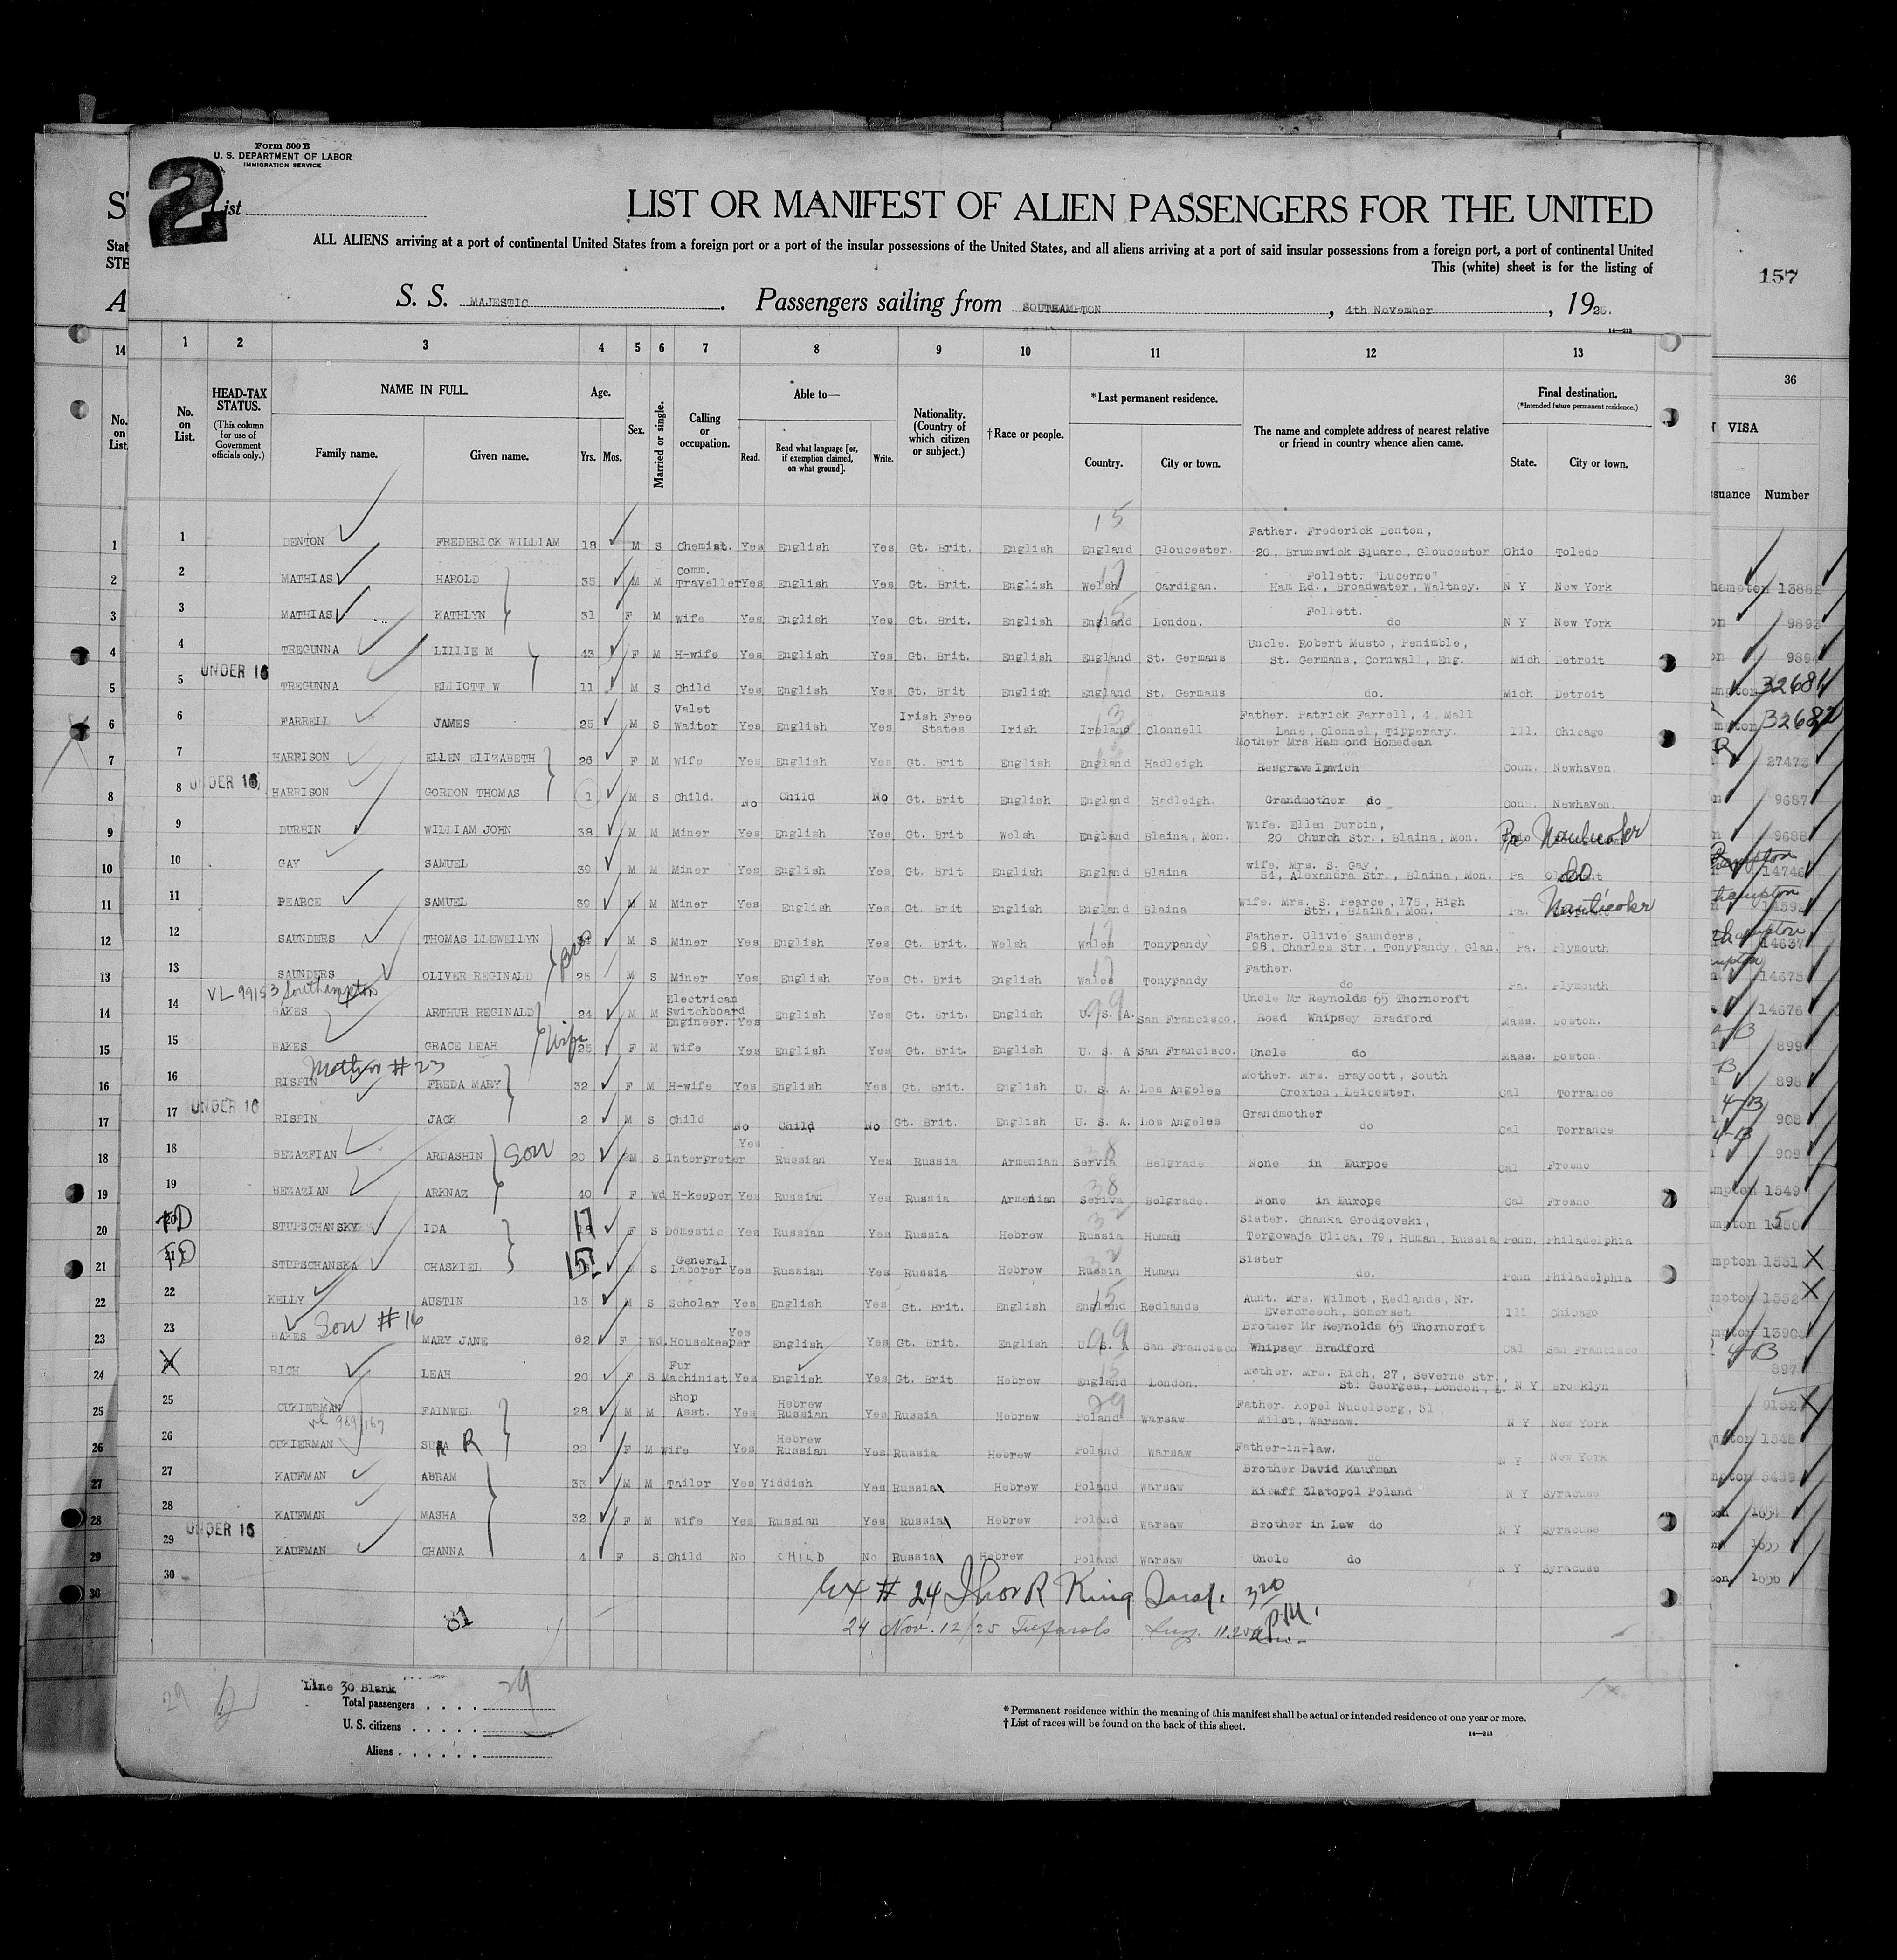 Form 500 B
U. S. DEPARTMENT OF LABOR
IMMIGRATION SERVICE
2
List
LIST OR MANIFEST OF ALIEN PASSENGERS FOR THE UNITED
ALL ALIENS arriving at a port of continental United States from a foreign port or a port of the insular possessions of the United States, and all aliens arriving at a port of said insular possessions from a foreign port, a port of continental United
This (white) sheet is for the listing of
157
S. S. MAJESTIC. Passengers sailing from SOUTHAMPTON, 4th November, 1925.
14—213
1 2 3 4 5 6 7 8 9 10 11 12 13
No. on List. HEAD-TAX STATUS. (This column for use of Government officials only.) NAME IN FULL. Family name. Given name. Age. Yrs. Mos. Sex. Married or single. Calling or occupation. Able to— Read. Read what language [or, if exemption claimed, on what ground]. Write. Nationality. (Country of which citizen or subject.) †Race or people. *Last permanent residence. Country. City or town. The name and complete address of nearest relative or friend in country whence alien came. Final destination. (*Intended future permanent residence.) State. City or town.
36
VISA
Number
1 DENTON FREDERICK WILLIAM 18 M S Chemist. Yes English Yes Gt. Brit. English 15 England Gloucester. Father. Frederick Denton, 20, Brunswick Square, Gloucester Ohio Toledo
2 MATHIAS HAROLD 35 M M Comm. Traveller Yes English Yes Gt. Brit. English Welsh Cardigan. Follett. "Lucerne" Ham Rd., Broadwater, Waltney. N Y New York
3 MATHIAS KATHLYN 31 F M Wife Yes English Yes Gt. Brit. English England London. Follett. do N Y New York
4 TREGUNNA LILLIE M 43 F M H-wife Yes English Yes Gt. Brit. English England St. Germans Uncle. Robert Musto, Penimble, St. Germans, Cornwall, Eng. Mich Detroit
UNDER 16
5 TREGUNNA ELLIOTT W 11 M S Child Yes English Yes Gt. Brit English England St. Germans do. Mich Detroit
6 FARRELL JAMES 25 M S Valet Waiter Yes English Yes Irish Free States Irish Ireland Clonnell Father. Patrick Farrell, 4, Mall Lane, Clonnel, Tipperary. Ill. Chicago
7 HARRISON ELLEN ELIZABETH 26 F M Wife Yes English Yes Gt. Brit English England Hadleigh Mother Mrs Hammond Homedean Resgrave Ipwich Conn. Newhaven.
UNDER 16
8 HARRISON GORDON THOMAS 1 M S Child. No Child No Gt. Brit English England Hadleigh. Grandmother do Conn. Newhaven.
9 DURBIN WILLIAM JOHN 38 M M Miner Yes English Yes Gt. Brit Welsh England Blaina, Mon. Wife. Ellen Durbin, 20 Church Str., Blaina, Mon. Pa
10 GAY SAMUEL 39 M M Miner Yes English Yes Gt. Brit English England Blaina wife. Mrs. S. Gay, 54, Alexandra Str., Blaina, Mon. Pa do
11 PEARCE SAMUEL 39 M M Miner Yes English Yes Gt. Brit English England Blaina Wife. Mrs. S. Pearce, 175, High Str., Blaina, Mon. Pa.
12 SAUNDERS THOMAS LLEWELLYN M S Miner Yes English Yes Gt. Brit. Welsh Wales Tonypandy Father. Olivie Saunders, 98, Charles Str., Tonypandy, Glan. Pa. Plymouth
13 SAUNDERS OLIVER REGINALD 25 M S Miner Yes English Yes Gt. Brit English Wales Tonypandy Father. do Pa. Plymouth
VL 99153 Southampton
14 BAKES ARTHUR REGINALD 24 M M Electrican Switchboard Engineer. Yes English Yes Gt. Brit. English 99 U. S. A. San Francisco. Uncle Mr Reynolds 65 Thorncroft Road Whipsey Bradford Mass. Boston.
15 BAKES GRACE LEAH Wife 25 F M Wife Yes English Yes Gt. Brit. English U. S. A San Francisco. Uncle do Mass. Boston
Mother #23
16 RISPIN FREDA MARY 32 F M H-wife Yes English Yes Gt. Brit. English U. S. A. Los Angeles Mother. Mrs. Braycott, South Croxton, Leicester. Cal Torrance
UNDER 16
17 RISPIN JACK 2 M S Child No Child No Gt. Brit. English U. S. A. Los Angeles Grandmother do Cal Torrance
18 BEZAZFIAN ARDASHIN Son 20 M S Interpreter Yes Russian Yes Russia Armenian 38 Servia Belgrade None in Eurpoe Cal Fresno
19 BEZAZIAN ARKNAZ 40 F Wd H-keeper Yes Russian Yes Russia Armenian 38 Seriva Belgrade. None in Europe Cal Fresno
20 STUPSCHANSKY IDA 17 F S Domestic Yes Russian Yes Russia Hebrew 32 Russia Human Sister. Chanka Grodzovski, Tergowaja Ulica, 79, Human, Russia Penn. Philadelphia
21 STUPSCHANSKA CHASKIEL 15 S General Laborer Yes Russian Yes Russia Hebrew 32 Russia Human Sister do. Penn Philadelphia
22 KELLY AUSTIN 13 M S Scholar Yes English Yes Gt. Brit. English 15 England Redlands Aunt. Mrs. Wilmot, Redlands, Nr. Evercreech, Somerset Ill Chicago
Son #16
23 BAKES MARY JANE 62 F Wd. Housekeeper Yes English Yes Gt. Brit. English 99 U. S. A San Francisco Brother Mr Reynolds 65 Thorncroft Whipsey Bradford Cal San Francisco
24 RICH LEAH 20 F S Fur Machinist Yes English Yes Gt. Brit Hebrew 15 England London. Mother. Mrs. Rich, 27, Severne Str., St. Georges, London, E. N Y Brooklyn
25 CUKIERMAN FAINWEL 28 M M Shop Asst. Yes Hebrew Russian Yes Russia Hebrew Poland Warsaw Father. Kopel Nudelberg, 31, Milst, Warsaw. N Y New York
26 CUKIERMAN R 22 F M Wife Yes Hebrew Russian Yes Russia Hebrew Poland Warsaw Father-in-law. do N Y New York
27 KAUFMAN ABRAM 33 M M Tailor Yes Yiddish Yes Russia Hebrew Poland Warsaw Brother David Kaufman Kieaff Zlatopol Poland N Y Syracuse
28 KAUFMAN MASHA 32 F M Wife Yes Russian Yes Russia Hebrew Poland Warsaw Brother in Law do N Y Syracuse
UNDER 16
29 KAUFMAN CHANNA 4 F S Child No CHILD No Russia Hebrew Poland Warsaw Uncle do N Y Syracuse
30
#24 Thos R King Insp. 320 P.M.
24 Nov. 12/25
81
Line 30 Blank
Total passengers 29
U. S. citizens
Aliens
* Permanent residence within the meaning of this manifest shall be actual or intended residence of one year or more.
† List of races will be found on the back of this sheet.
14—213